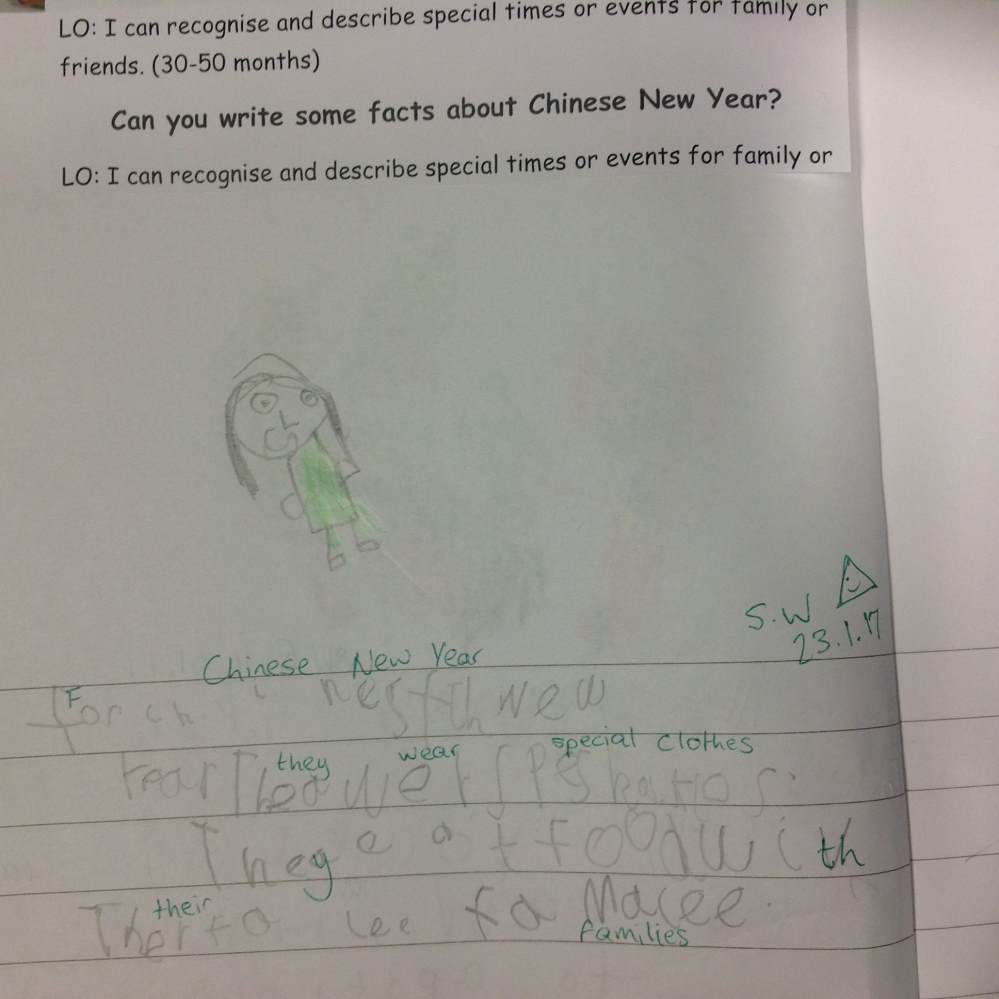 LO: I can recognise and describe special times or events for family or
friends. (30-50 months)
Can you write some facts about Chinese New Year?
LO: I can recognise and describe special times or events for family or
S.W
23.1.17
Chinese New Year
F
for ch nesfth wew
they wear special clothes
year Thea wer
They e at food with
their
lee fa Macee.
families